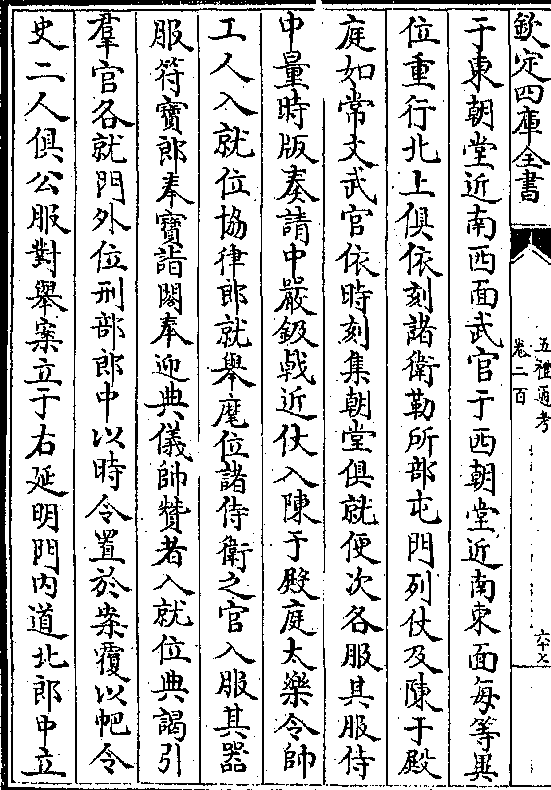 欽定四庫全書
五禮通考
卷二百
六十七
于東朝堂近南西面武官于西朝堂近南東面每等異
位重行北上俱依刻諸衛勒所部屯門列仗及陳于殿
庭如常文武官依時刻集朝堂俱就便次各服其服侍
中量時版奏請中嚴鈒戟近仗入陳于殿庭太樂令帥
工人入就位協律郎就舉麾位諸侍衛之官入服其器
服符寶郎奉寶詣閤奉迎典儀帥贊者入就位典謁引
羣官各就門外位刑部郎中以時令置於案覆以帊令
史二人俱公服對舉案立于右延明門内道北郎中立